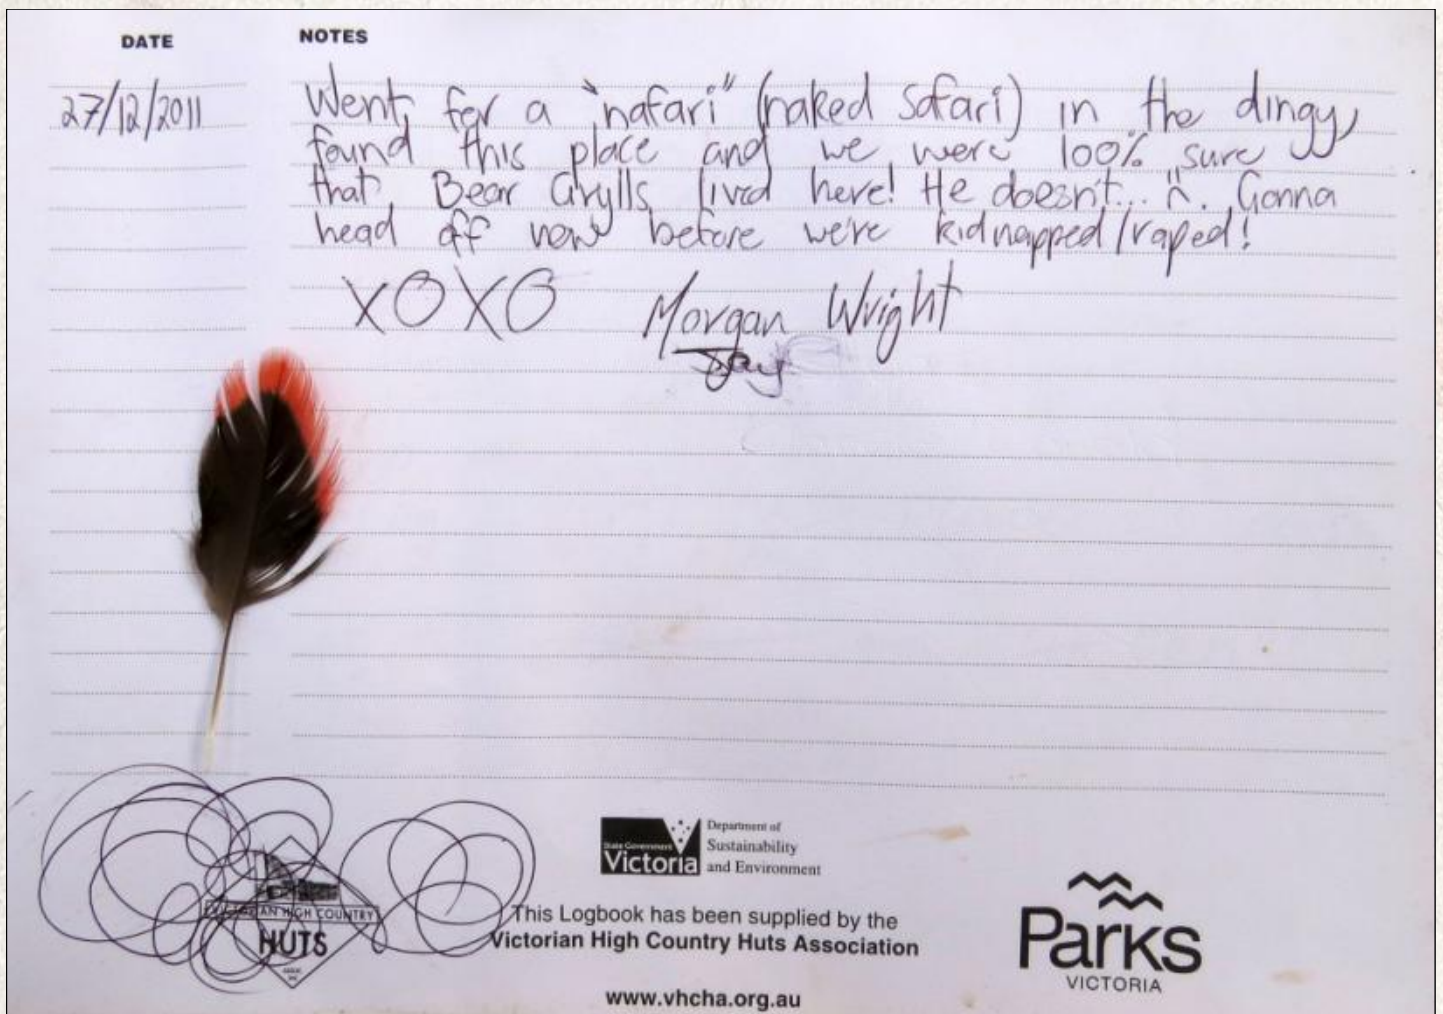 DATE NOTES
27/12/2011 Went for a "nafari" (naked safari) in the dingy,
found this place and we were 100% sure
that Bear Grylls lived here! He doesn't... :(. Gonna
head off now before we're kidnapped/raped!
XOXO Morgan Wright
VICTORIAN HIGH COUNTRY
HUTS
ASSOC.
INC
State Government
Victoria
Department of
Sustainability
and Environment
This Logbook has been supplied by the
Victorian High Country Huts Association
www.vhcha.org.au
Parks
VICTORIA